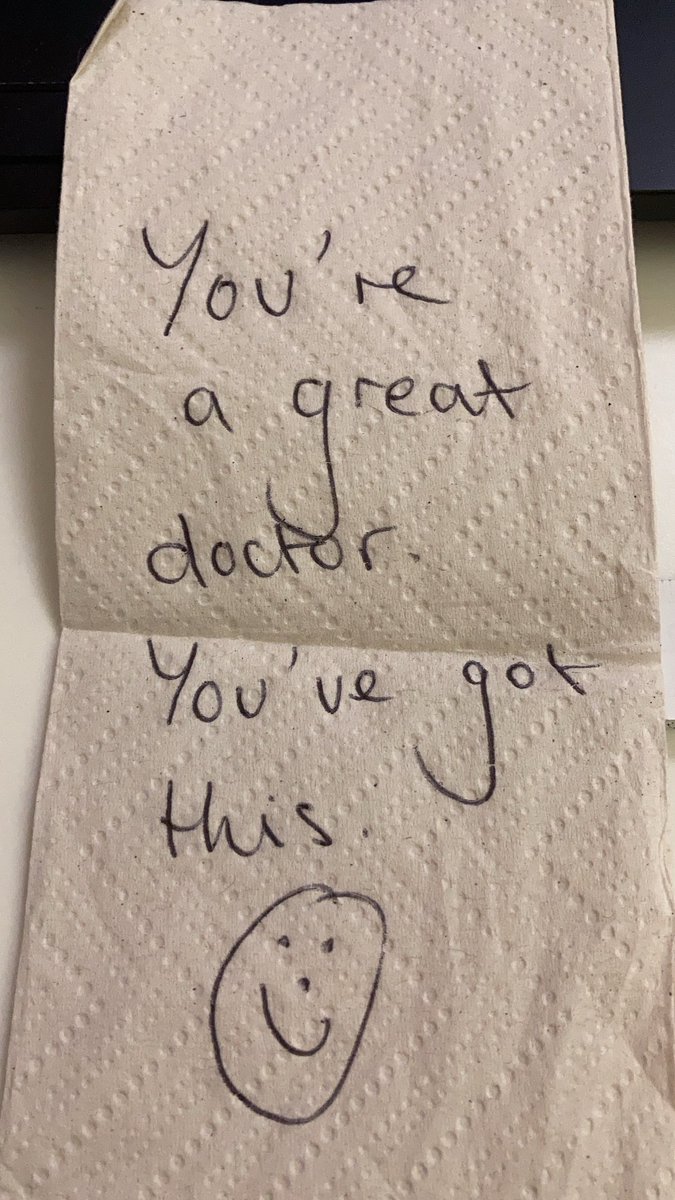 You're
a great
doctor.
You've got
this.